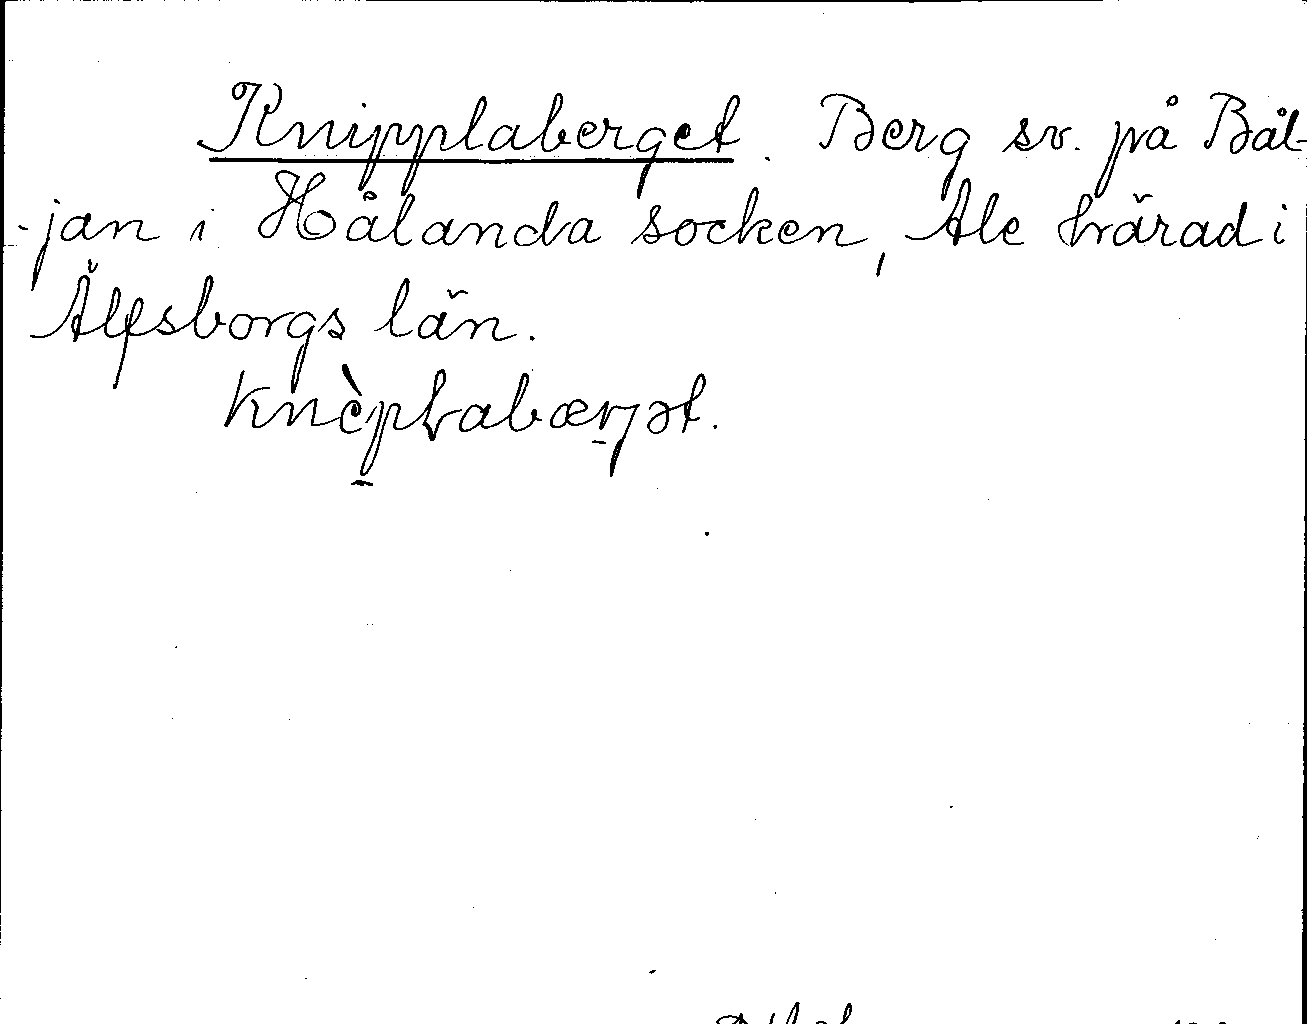 Knipplaberget. Berg sv. på Bäl-
-jan i Hålanda socken, Ale härad i
Älfsborgs län.
knèplabærjət.